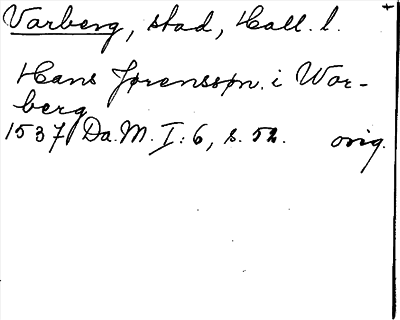 Varberg, stad, Hall. l.
Hans Jørenssøn i War-
berg
1537 Da. M. I: 6, s. 52. orig.